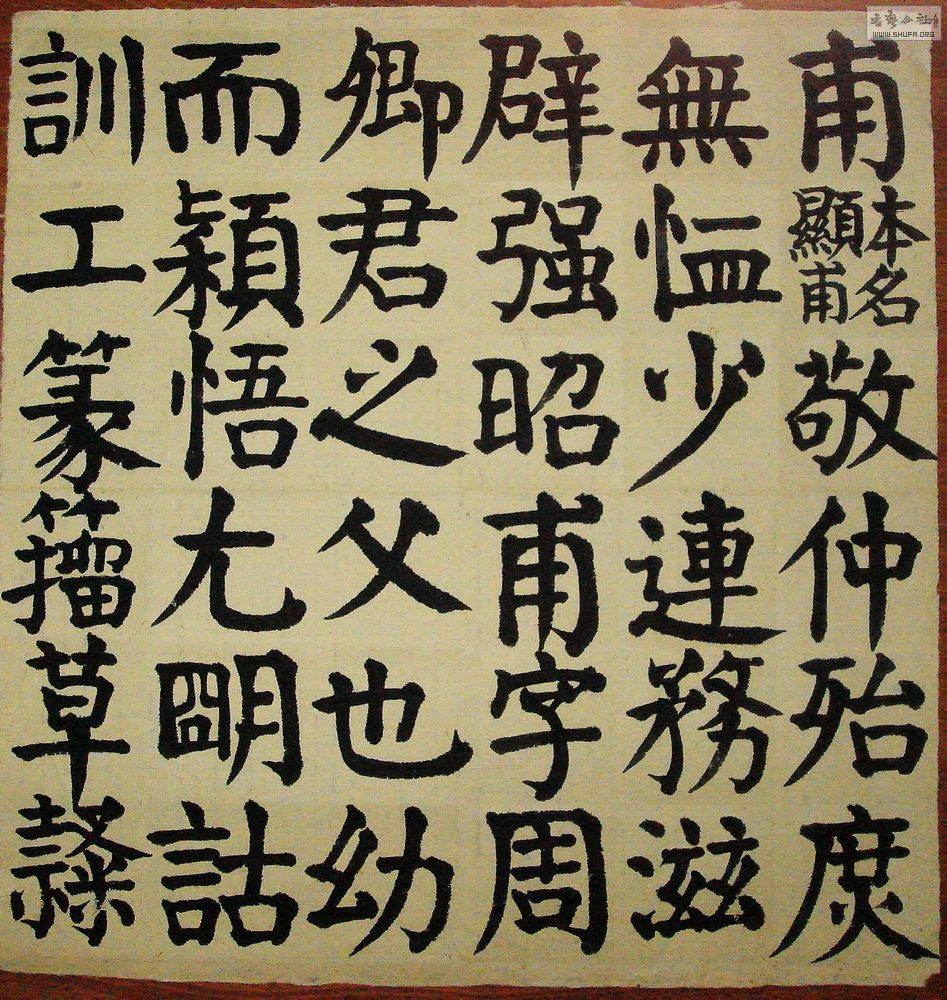 甫本名顯甫敬仲殆庶
無恤少連務滋
辟强昭甫字周
卿君之父也幼
而穎悟尤明詁
訓工篆籀草隸
书艺公社
WWW.SHUFA.ORG